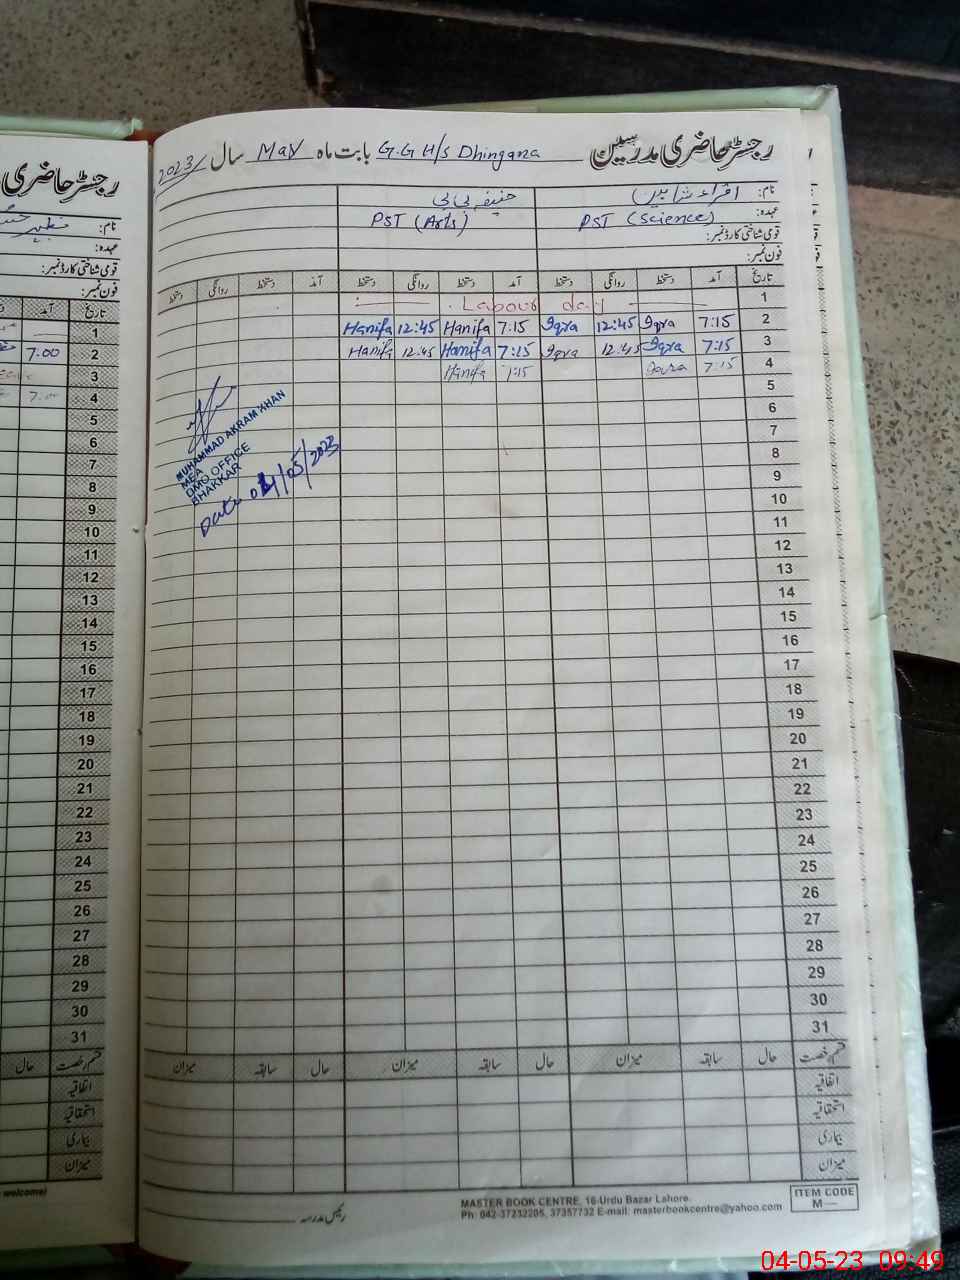 رجسٹر حاضری مدرسین G.G H/S Dhingana بابت ماہ May سال 2023
نام: اقراء شاہین حنیفہ بی بی
عہدہ: PST (Science) PST (Arts)
قومی شناختی کارڈ نمبر:
فون نمبر:
تاریخ آمد دستخط روانگی دستخط آمد دستخط روانگی دستخط آمد دستخط روانگی دستخط
1 Labour day
2 7:15 Iqra 12:45 Iqra 7:15 Hanifa 12:45 Hanifa
3 7:15 Iqra 12:45 Iqra 7:15 Hanifa 12:45 Hanifa
4 7:15 Iqra 7:15 Hanifa
5
6
7
8
9
10
11
12
13
14
15
16
17
18
19
20
21
22
23
24
25
26
27
28
29
30
31
MUHAMMAD AKRAM KHAN
MEA
DMO OFFICE
BHAKKAR
Date 04/05/2023
قسم رخصت حال سابقہ میزان حال سابقہ میزان حال سابقہ میزان
اتفاقیہ
استحقاقیہ
بیماری
میزان
رئیس مدرسہ
MASTER BOOK CENTRE, 16-Urdu Bazar Lahore.
Ph: 042-37232205, 37357732 E-mail: masterbookcentre@yahoo.com
ITEM CODE
M—
رجسٹر حاضری
نام:
عہدہ:
قومی شناختی کارڈ نمبر:
فون نمبر:
تاریخ آمد
1
2 7.00
3
4
5
6
7
8
9
10
11
12
13
14
15
16
17
18
19
20
21
22
23
24
25
26
27
28
29
30
31
قسم رخصت حال
اتفاقیہ
استحقاقیہ
بیماری
میزان
welcome)
04-05-23 09:49